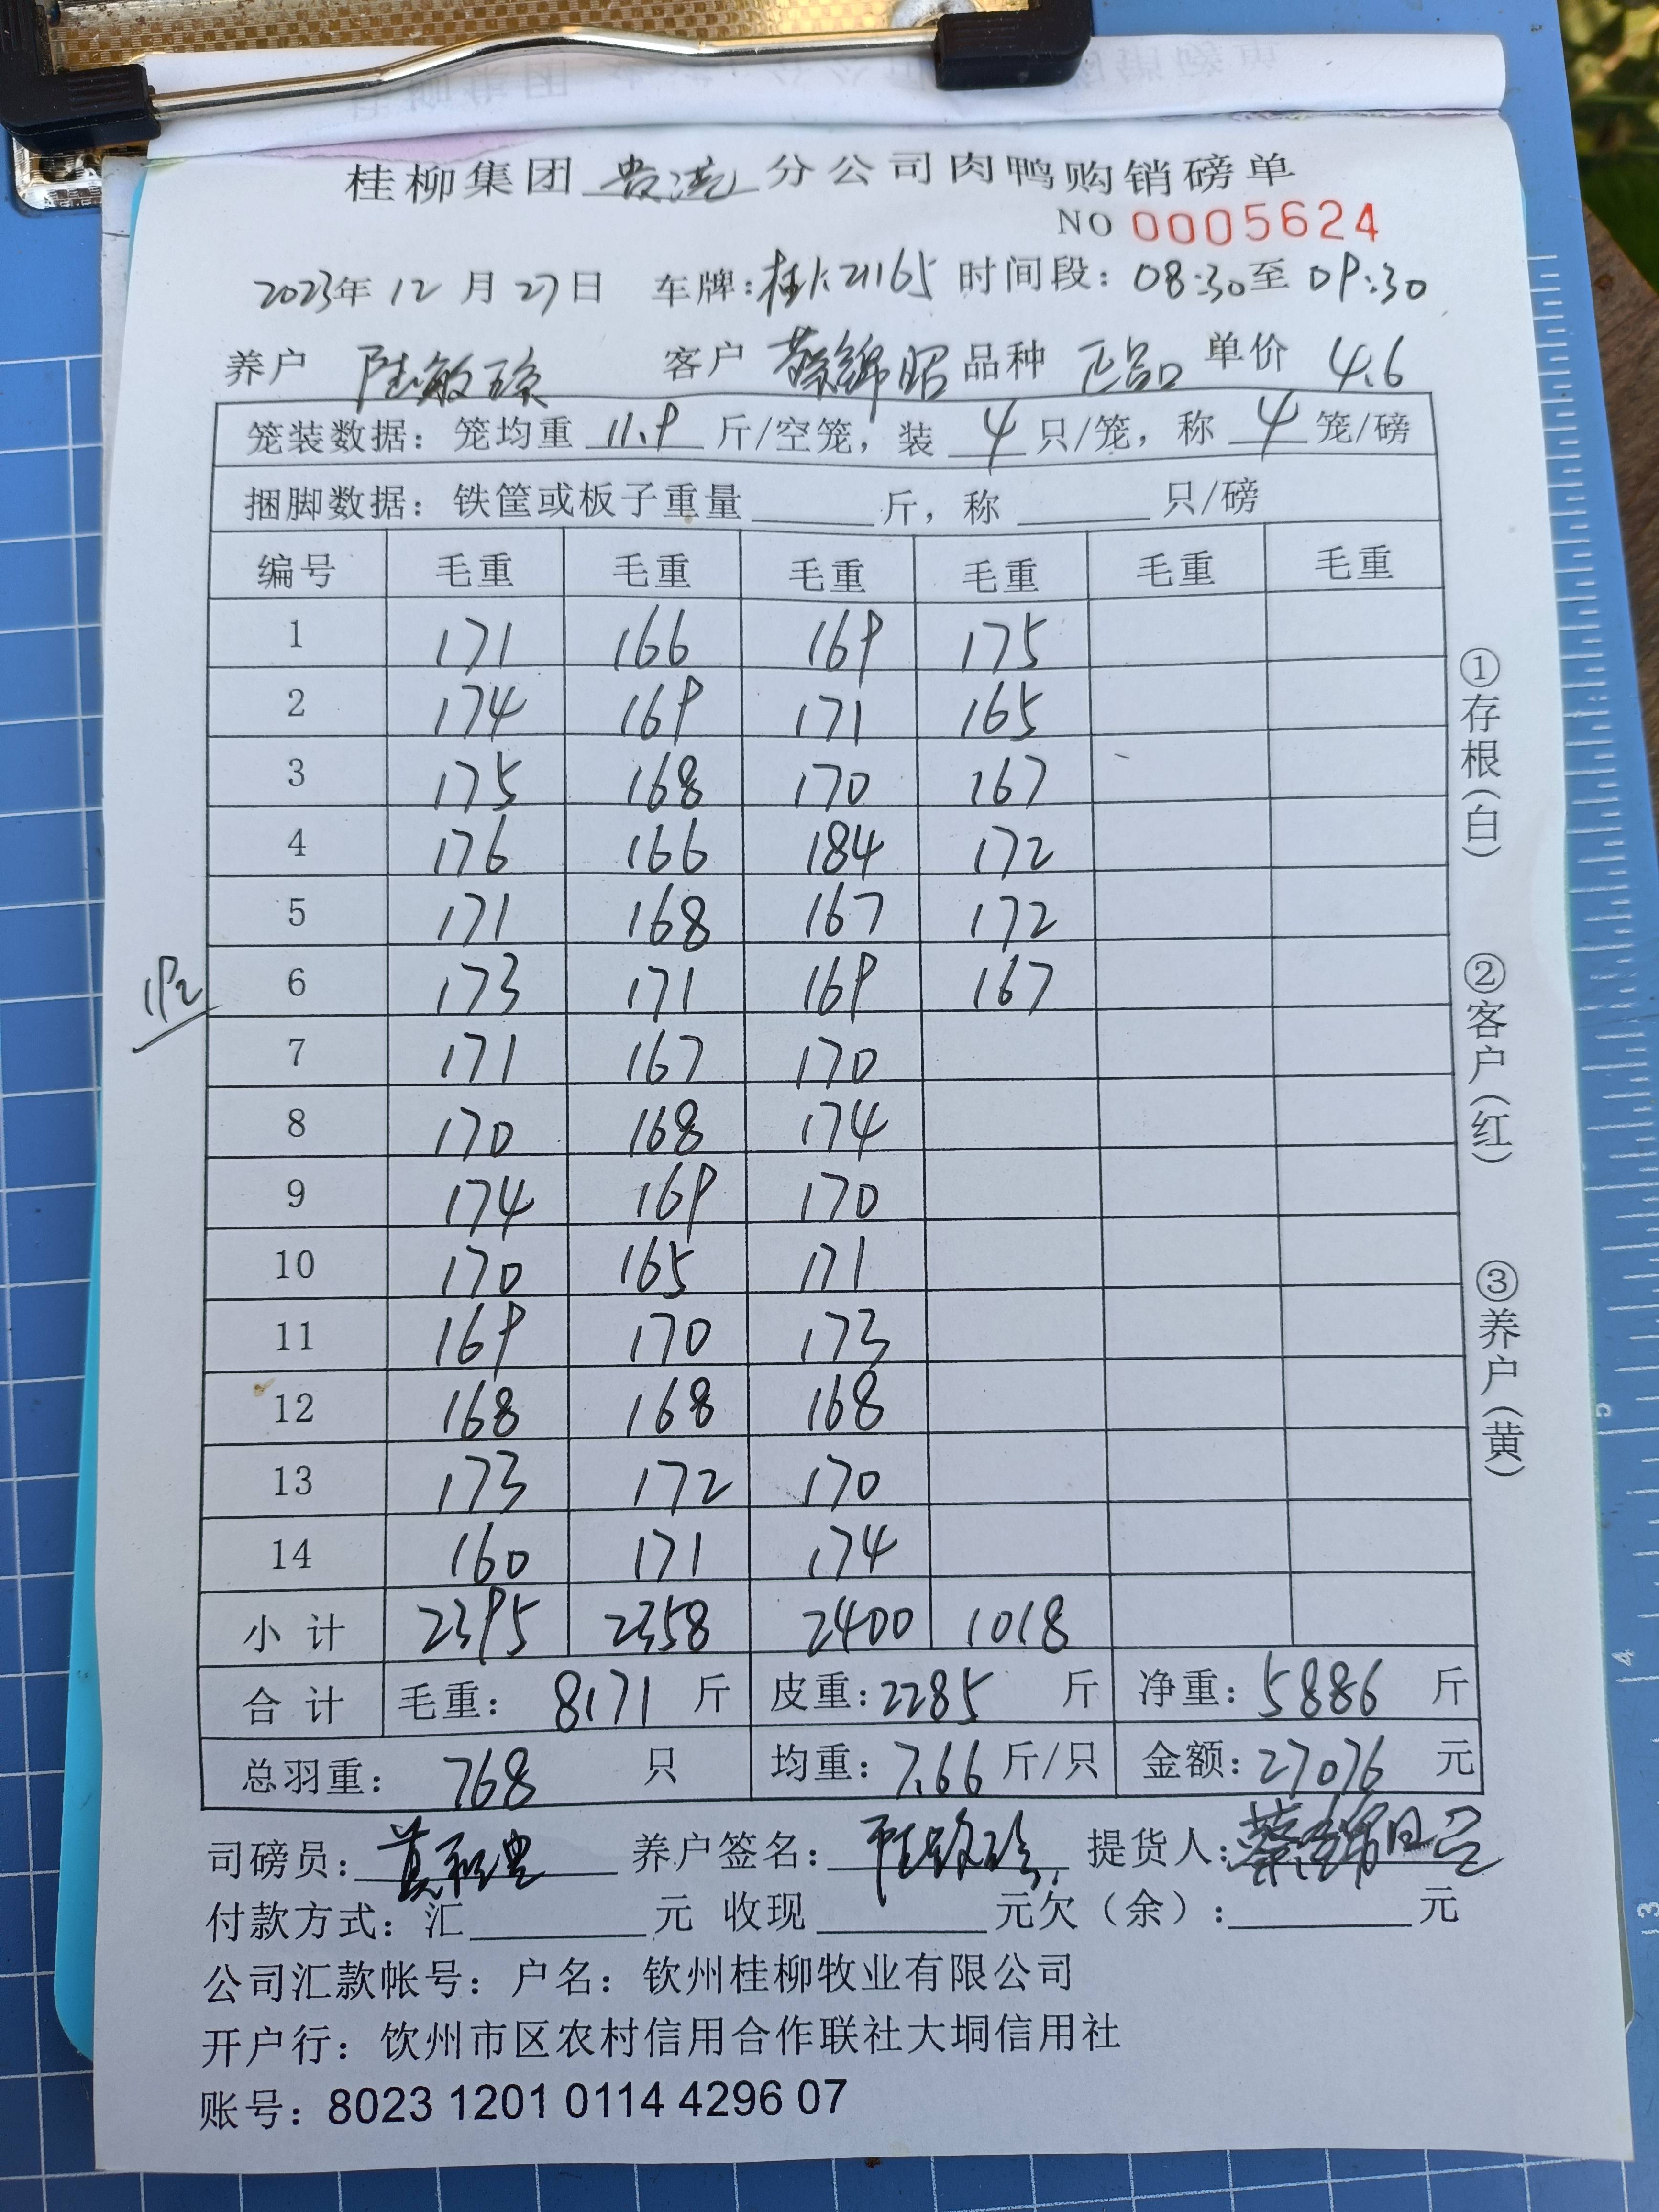 桂柳集团 贵港 分公司肉鸭购销磅单
NO 0005624
2023年 12 月 27日 车牌:桂K21165 时间段: 08:30至 09:30
养户 陆敏 客户 蔡锦昭 品种 正品 单价 4.6
笼装数据: 笼均重 11.9 斤/空笼, 装 4 只/笼, 称 4 笼/磅
捆脚数据: 铁筐或板子重量 斤, 称 只/磅
编号 毛重 毛重 毛重 毛重 毛重 毛重
1 171 166 169 175
2 174 169 171 165
3 175 168 170 167
4 176 166 184 172
5 171 168 167 172
6 173 171 169 167
192
7 171 167 170
8 170 168 174
9 174 169 170
10 170 165 171
11 169 170 173
12 168 168 168
13 173 172 170
14 160 171 174
小计 2395 2358 2400 1018
合计 毛重: 8171 斤 皮重:2285 斤 净重:5886 斤
总羽重: 768 只 均重:7.66 斤/只 金额:27076 元
司磅员: 养户签名: 陆敏 提货人:蔡锦昭
付款方式: 汇 元 收现 元欠(余): 元
公司汇款帐号: 户名: 钦州桂柳牧业有限公司
开户行: 钦州市区农村信用合作联社大垌信用社
账号: 8023 1201 0114 4296 07
①存根(白)
②客户(红)
③养户(黄)